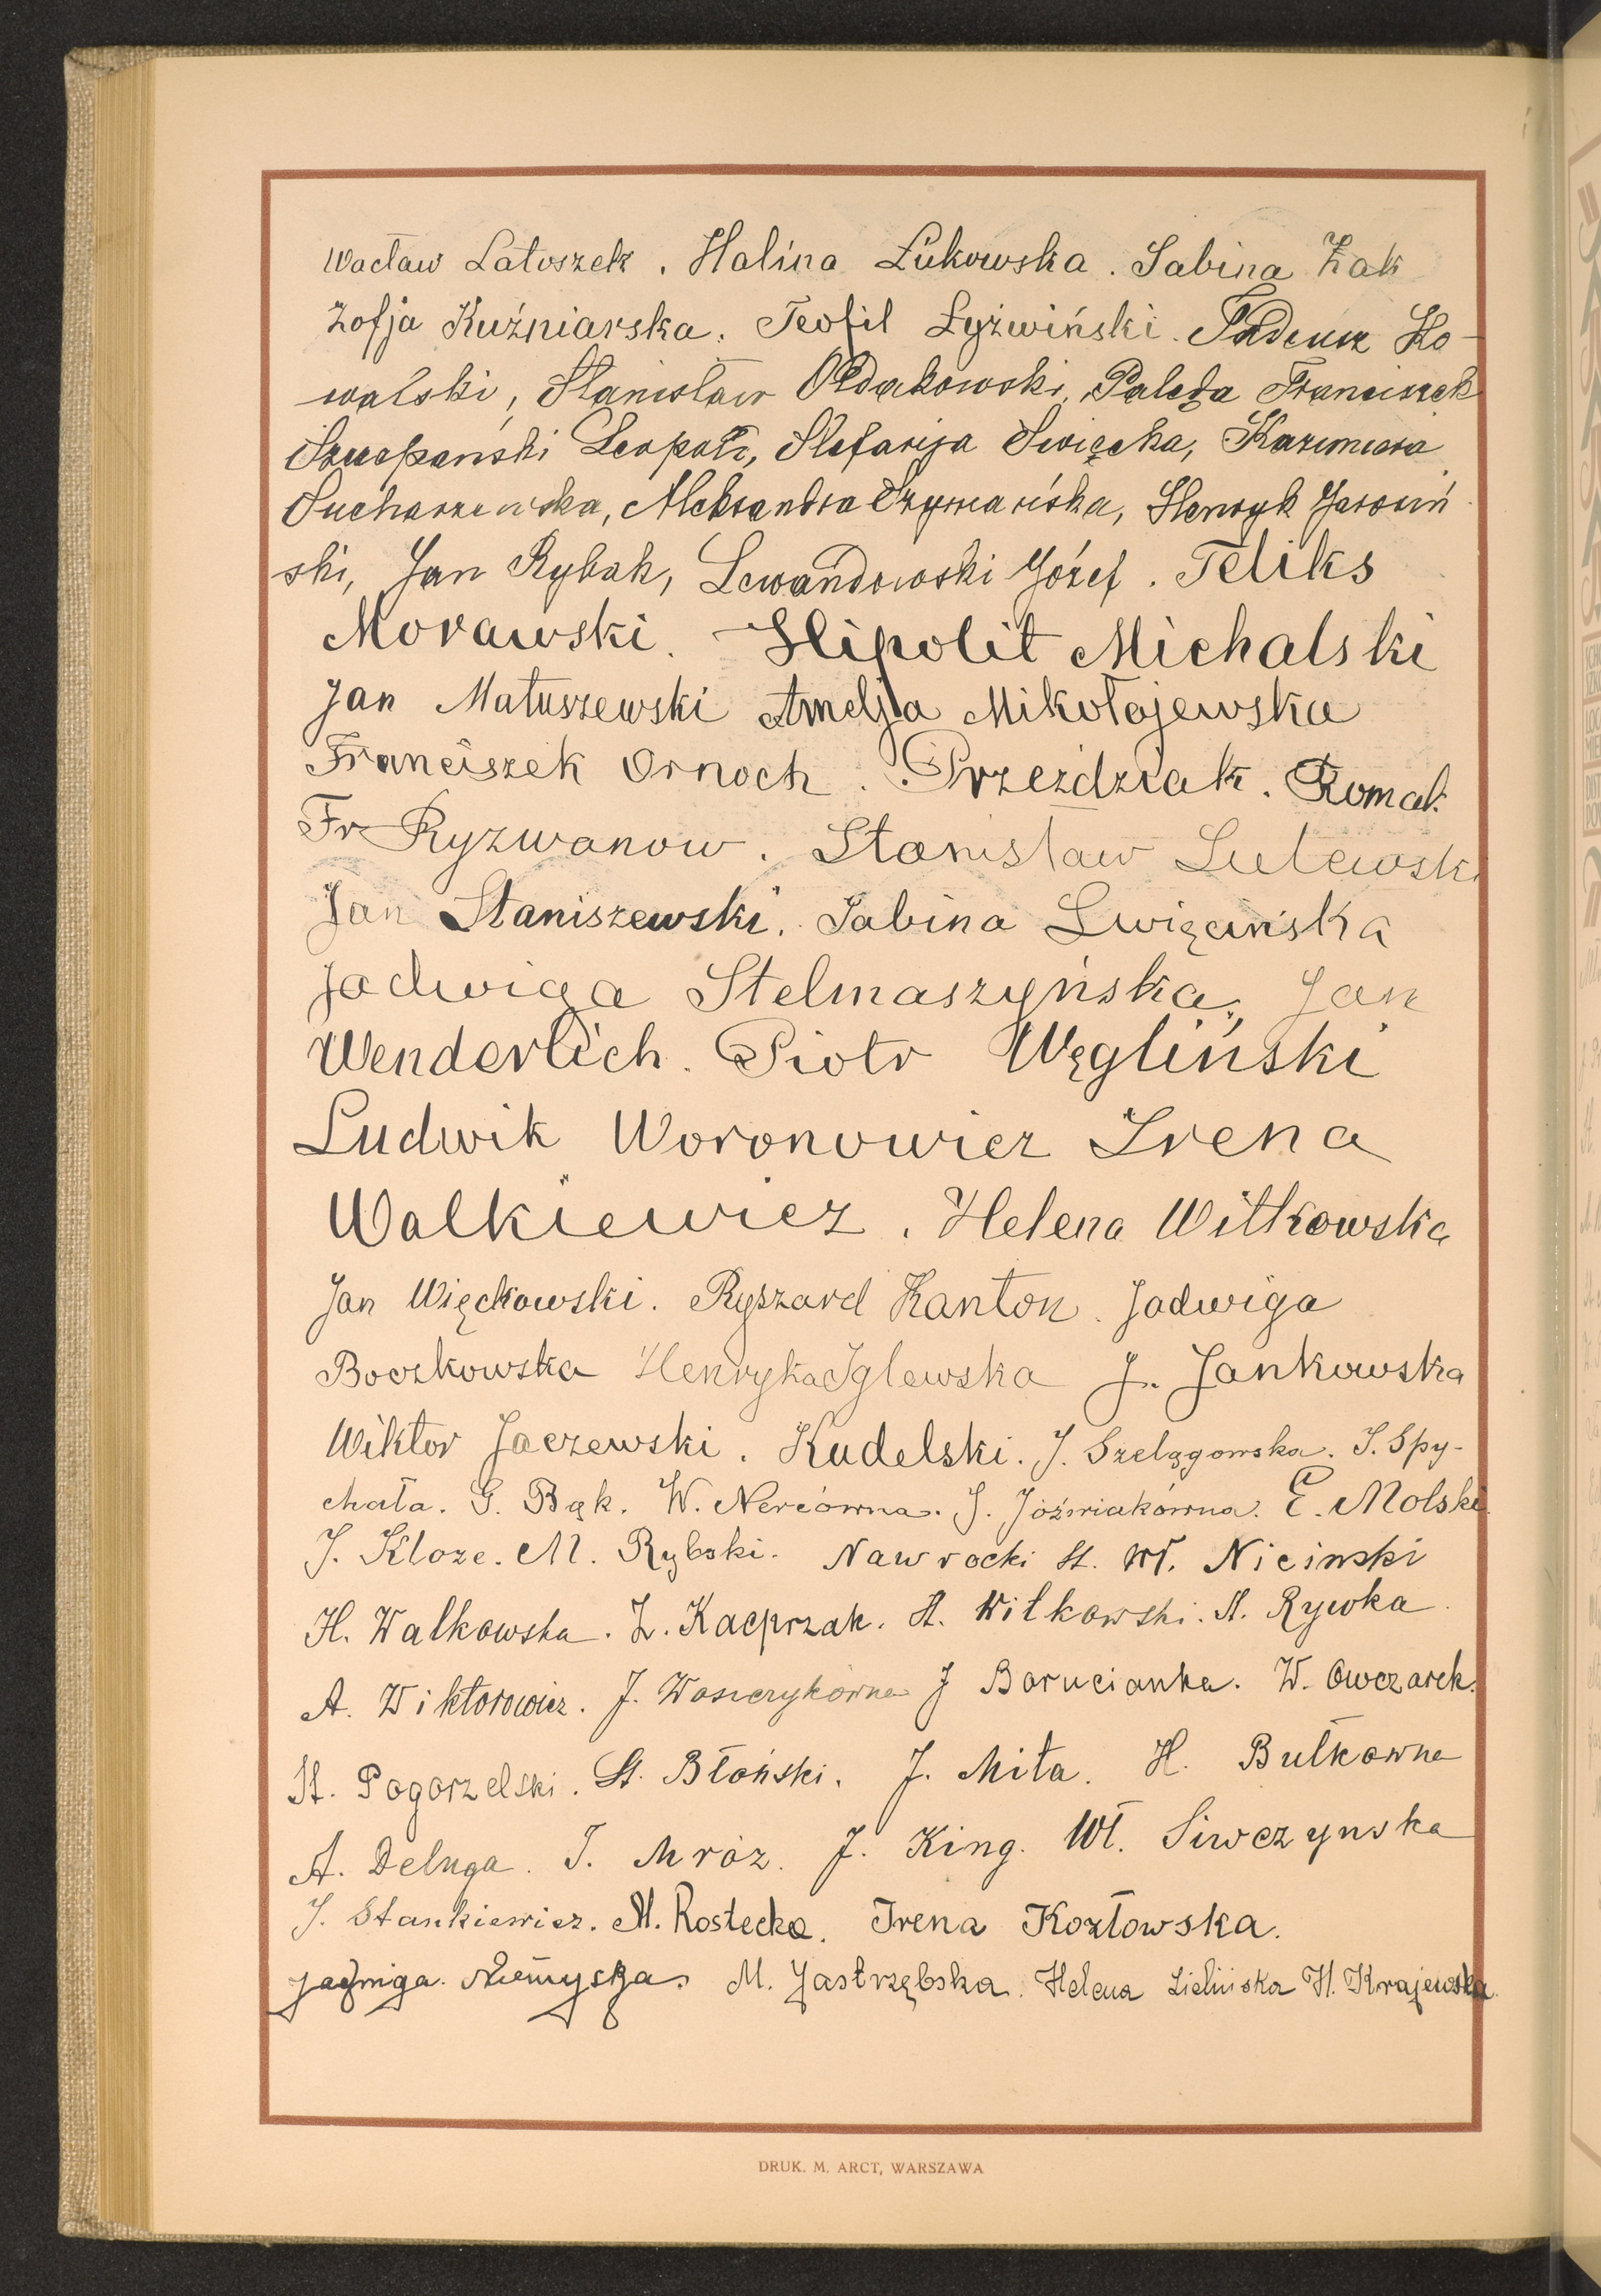 Wacław Latoszek. Halina Łukowska. Sabina Żak
Zofja Kuźniarska. Teofil Łyżwiński. Tadeusz Ko-
walski, Stanisław Ołdakowski, Palęda Franciszek
Szczepański Leopold, Stefanja Święcka, Kazimiera
Sucharzewska, Aleksandra Szymańska, Henryk Jarosiń
ski, Jan Rybak, Lewandowski Józef. Feliks
Morawski. Hipolit Michalski
Jan Matuszewski Amelja Mikołajewska
Franciszek Ornoch. Przeździak. Roman.
Fr Ryzwanow. Stanisław Lutewski
Jan Staniszewski. Sabina Święcińska
Jadwiga Stelmaszyńska, Jan
Wenderlich. Piotr Węgliński
Ludwik Woronowicz Irena
Walkiewicz. Helena Witkowska
Jan Więckowski. Ryszard Kanton. Jadwiga
Boczkowska Henryka Iglewska J. Jankowska
Wiktor Jaczewski. Kudelski. J. Szelągowska. I. Spy-
chała. G. Bąk. W. Nercówna. J. Jóźwiakówna. E. Molski
J. Kloze. M. Rybski. Nawrocki St. Wł. Nicinski
H. Walkowska. Z. Kacprzak. A. Witkowski. A. Rywka
A. Wiktorowicz. J. Wosiczykówna J Borucianka. W. Owczarek.
St. Pogorzelski. St. Błoński. J. Miła. H. Butkówna
A. Deluga. T. Mróz. J. King. Wł. Siwczynska
J. Stankiewicz. M. Rostecka. Irena Kozłowska.
Jadwiga. Niemyska. M. Jastrzębska. Helena Lielińska H. Krajewska.
DRUK. M. ARCT, WARSZAWA